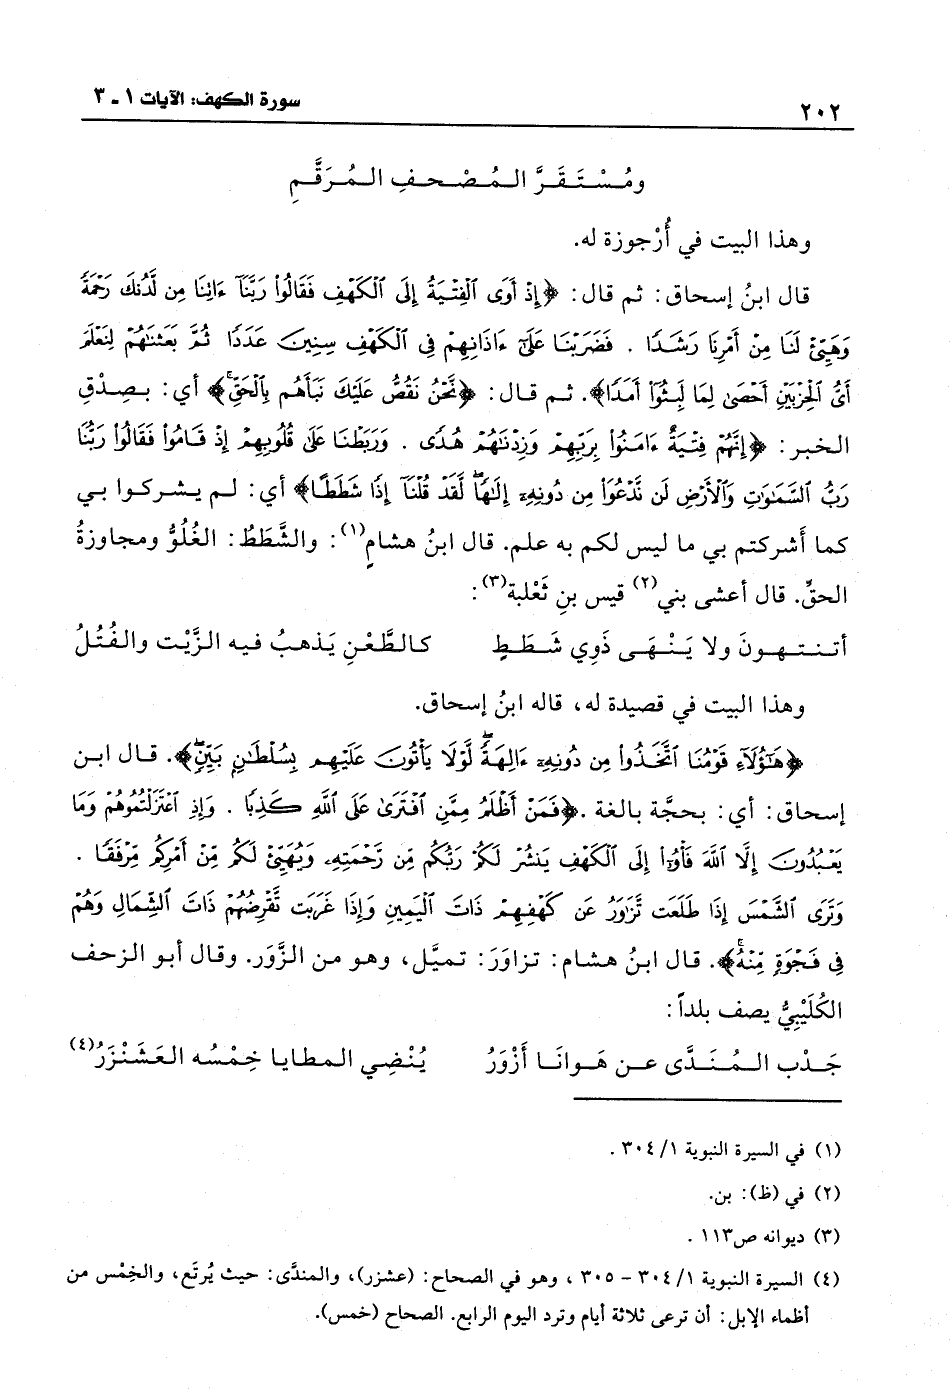 ٢٠٢ سورة الكهف: الآيات ١ ـ ٣
ومُـسْـتَـقَـرَّ الـمُـصْـحـفِ الـمُـرَقَّـمِ
وهذا البيت في أُرْجوزة له.
قال ابنُ إسحاق: ثم قال: ﴿إِذْ أَوَى ٱلْفِتْيَةُ إِلَى ٱلْكَهْفِ فَقَالُوا۟ رَبَّنَآ ءَاتِنَا مِن لَّدُنكَ رَحْمَةً
وَهَيِّئْ لَنَا مِنْ أَمْرِنَا رَشَدًا . فَضَرَبْنَا عَلَىٰٓ ءَاذَانِهِمْ فِى ٱلْكَهْفِ سِنِينَ عَدَدًا ثُمَّ بَعَثْنَٰهُمْ لِنَعْلَمَ
أَىُّ ٱلْحِزْبَيْنِ أَحْصَىٰ لِمَا لَبِثُوٓا۟ أَمَدًا﴾. ثـم قـال: ﴿نَّحْنُ نَقُصُّ عَلَيْكَ نَبَأَهُم بِٱلْحَقِّ ۚ﴾ أي: بـصِـدْقِ
الخبر: ﴿إِنَّهُمْ فِتْيَةٌ ءَامَنُوا۟ بِرَبِّهِمْ وَزِدْنَٰهُمْ هُدًى . وَرَبَطْنَا عَلَىٰ قُلُوبِهِمْ إِذْ قَامُوا۟ فَقَالُوا۟ رَبُّنَا
رَبُّ ٱلسَّمَٰوَٰتِ وَٱلْأَرْضِ لَن نَّدْعُوَا۟ مِن دُونِهِۦٓ إِلَٰهًا ۖ لَّقَدْ قُلْنَآ إِذًا شَطَطًا﴾ أي: لـم يشركوا بي
كما أشركتم بي ما ليس لكم به علم. قال ابنُ هشامٍ(١): والشَّطَطُ: الغُلُوُّ ومجاوزةُ
الحقِّ. قال أعشى بني(٢) قيس بنِ ثَعْلبة(٣):
أتـنـتـهـونَ ولا يَـنْـهَـى ذَوِي شَـطَـطٍ كالطَّعْنِ يَذهبُ فيه الزَّيْت والفُتُلُ
وهذا البيت في قصيدة له، قاله ابنُ إسحاق.
﴿هَٰٓؤُلَآءِ قَوْمُنَا ٱتَّخَذُوا۟ مِن دُونِهِۦٓ ءَالِهَةً ۖ لَّوْلَا يَأْتُونَ عَلَيْهِم بِسُلْطَٰنٍۭ بَيِّنٍ ۖ﴾. قال ابن
إسحاق: أي: بحجَّة بالغة .﴿فَمَنْ أَظْلَمُ مِمَّنِ ٱفْتَرَىٰ عَلَى ٱللَّهِ كَذِبًا . وَإِذِ ٱعْتَزَلْتُمُوهُمْ وَمَا
يَعْبُدُونَ إِلَّا ٱللَّهَ فَأْوُۥٓا۟ إِلَى ٱلْكَهْفِ يَنشُرْ لَكُمْ رَبُّكُم مِّن رَّحْمَتِهِۦ وَيُهَيِّئْ لَكُم مِّنْ أَمْرِكُم مِّرْفَقًا .
وَتَرَى ٱلشَّمْسَ إِذَا طَلَعَت تَّزَٰوَرُ عَن كَهْفِهِمْ ذَاتَ ٱلْيَمِينِ وَإِذَا غَرَبَت تَّقْرِضُهُمْ ذَاتَ ٱلشِّمَالِ وَهُمْ
فِى فَجْوَةٍ مِّنْهُ ۚ﴾. قال ابنُ هشام: تزاوَرَ: تميَل، وهو من الزَّوَر. وقال أبو الزحف
الكُلَيْبِيُّ يصف بلداً:
جَـدْب الـمُـنَـدَّى عـن هَـوانَـا أَزْوَرُ يُنْضِي المطايا خِمْسُه العَشَنْزَرُ(٤)
(١) في السيرة النبوية ١/ ٣٠٤ .
(٢) في (ظ): بن.
(٣) ديوانه ص١١٣ .
(٤) السيرة النبوية ١/ ٣٠٤ - ٣٠٥ ، وهو في الصحاح: (عشزر)، والمندَّى: حيث يُرتَع، والخِمْس من
أظماء الإبل: أن ترعى ثلاثة أيام وترد اليوم الرابع. الصحاح (خمس).